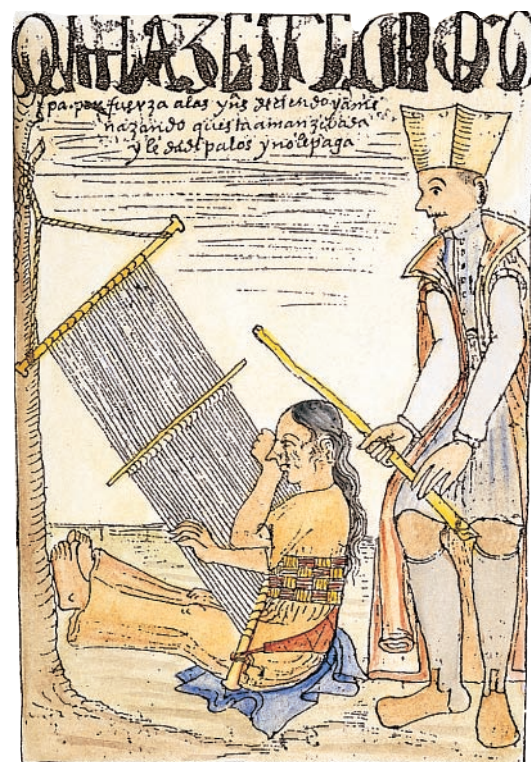 QVE HAZE TEGER RO
pa por fuerza a las yns deziendo y ame
nazando questa amanzebada
y le da de palos y no le paga